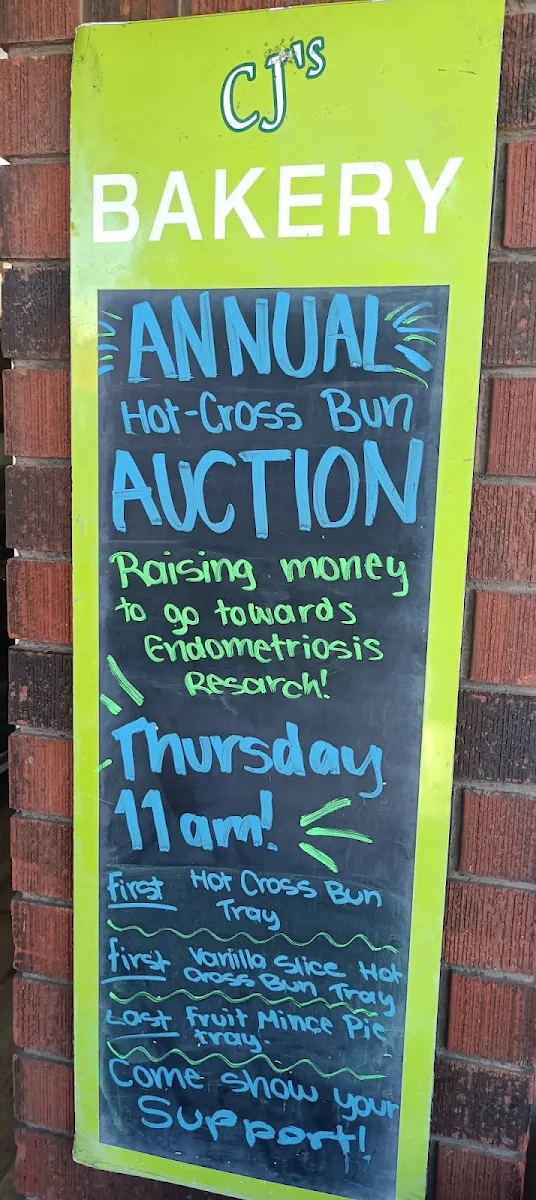 CJ's
BAKERY
ANNUAL
Hot-Cross Bun
AUCTION
Raising money
to go towards
Endometriosis
Resarch!
Thursday
11am!
First Hot Cross Bun
Tray
first Vanilla Slice Hot
Cross Bun Tray
Last Fruit Mince Pie
Tray.
Come show your
Support!